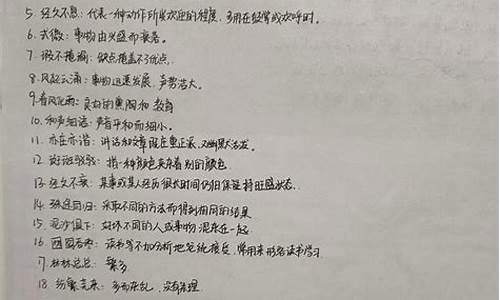 5. 经久不息：代表一种动作所发欢迎的程度，多用在经常或欢呼时。
6. 式微：事物由兴盛而衰落。
7. 瑕不掩瑜：缺点掩盖不了优点。
8. 风起云涌：事物迅速发展，声势浩大。
9. 春风化雨：良好的熏陶和教育
10. 和声细语：声音平和而细小。
11. 亦庄亦谐：讲话和文章既庄重正派，又幽默活泼。
12. 斑斑驳驳：指一种颜色夹杂着别的颜色
13. 经久不衰：某事或某人经历很长时间仍旧保持旺盛状态。
14. 殊途同归：采取不同的方法而得到相同的结果
15. 泥沙俱下：好坏不同的人或事物混杂在一起
16. 囫囵吞枣：读书等不加分析地笼统接受，常用来形容读书学习
17. 林林总总：繁多
18. 纷繁芜杂：多而杂乱，没有条理